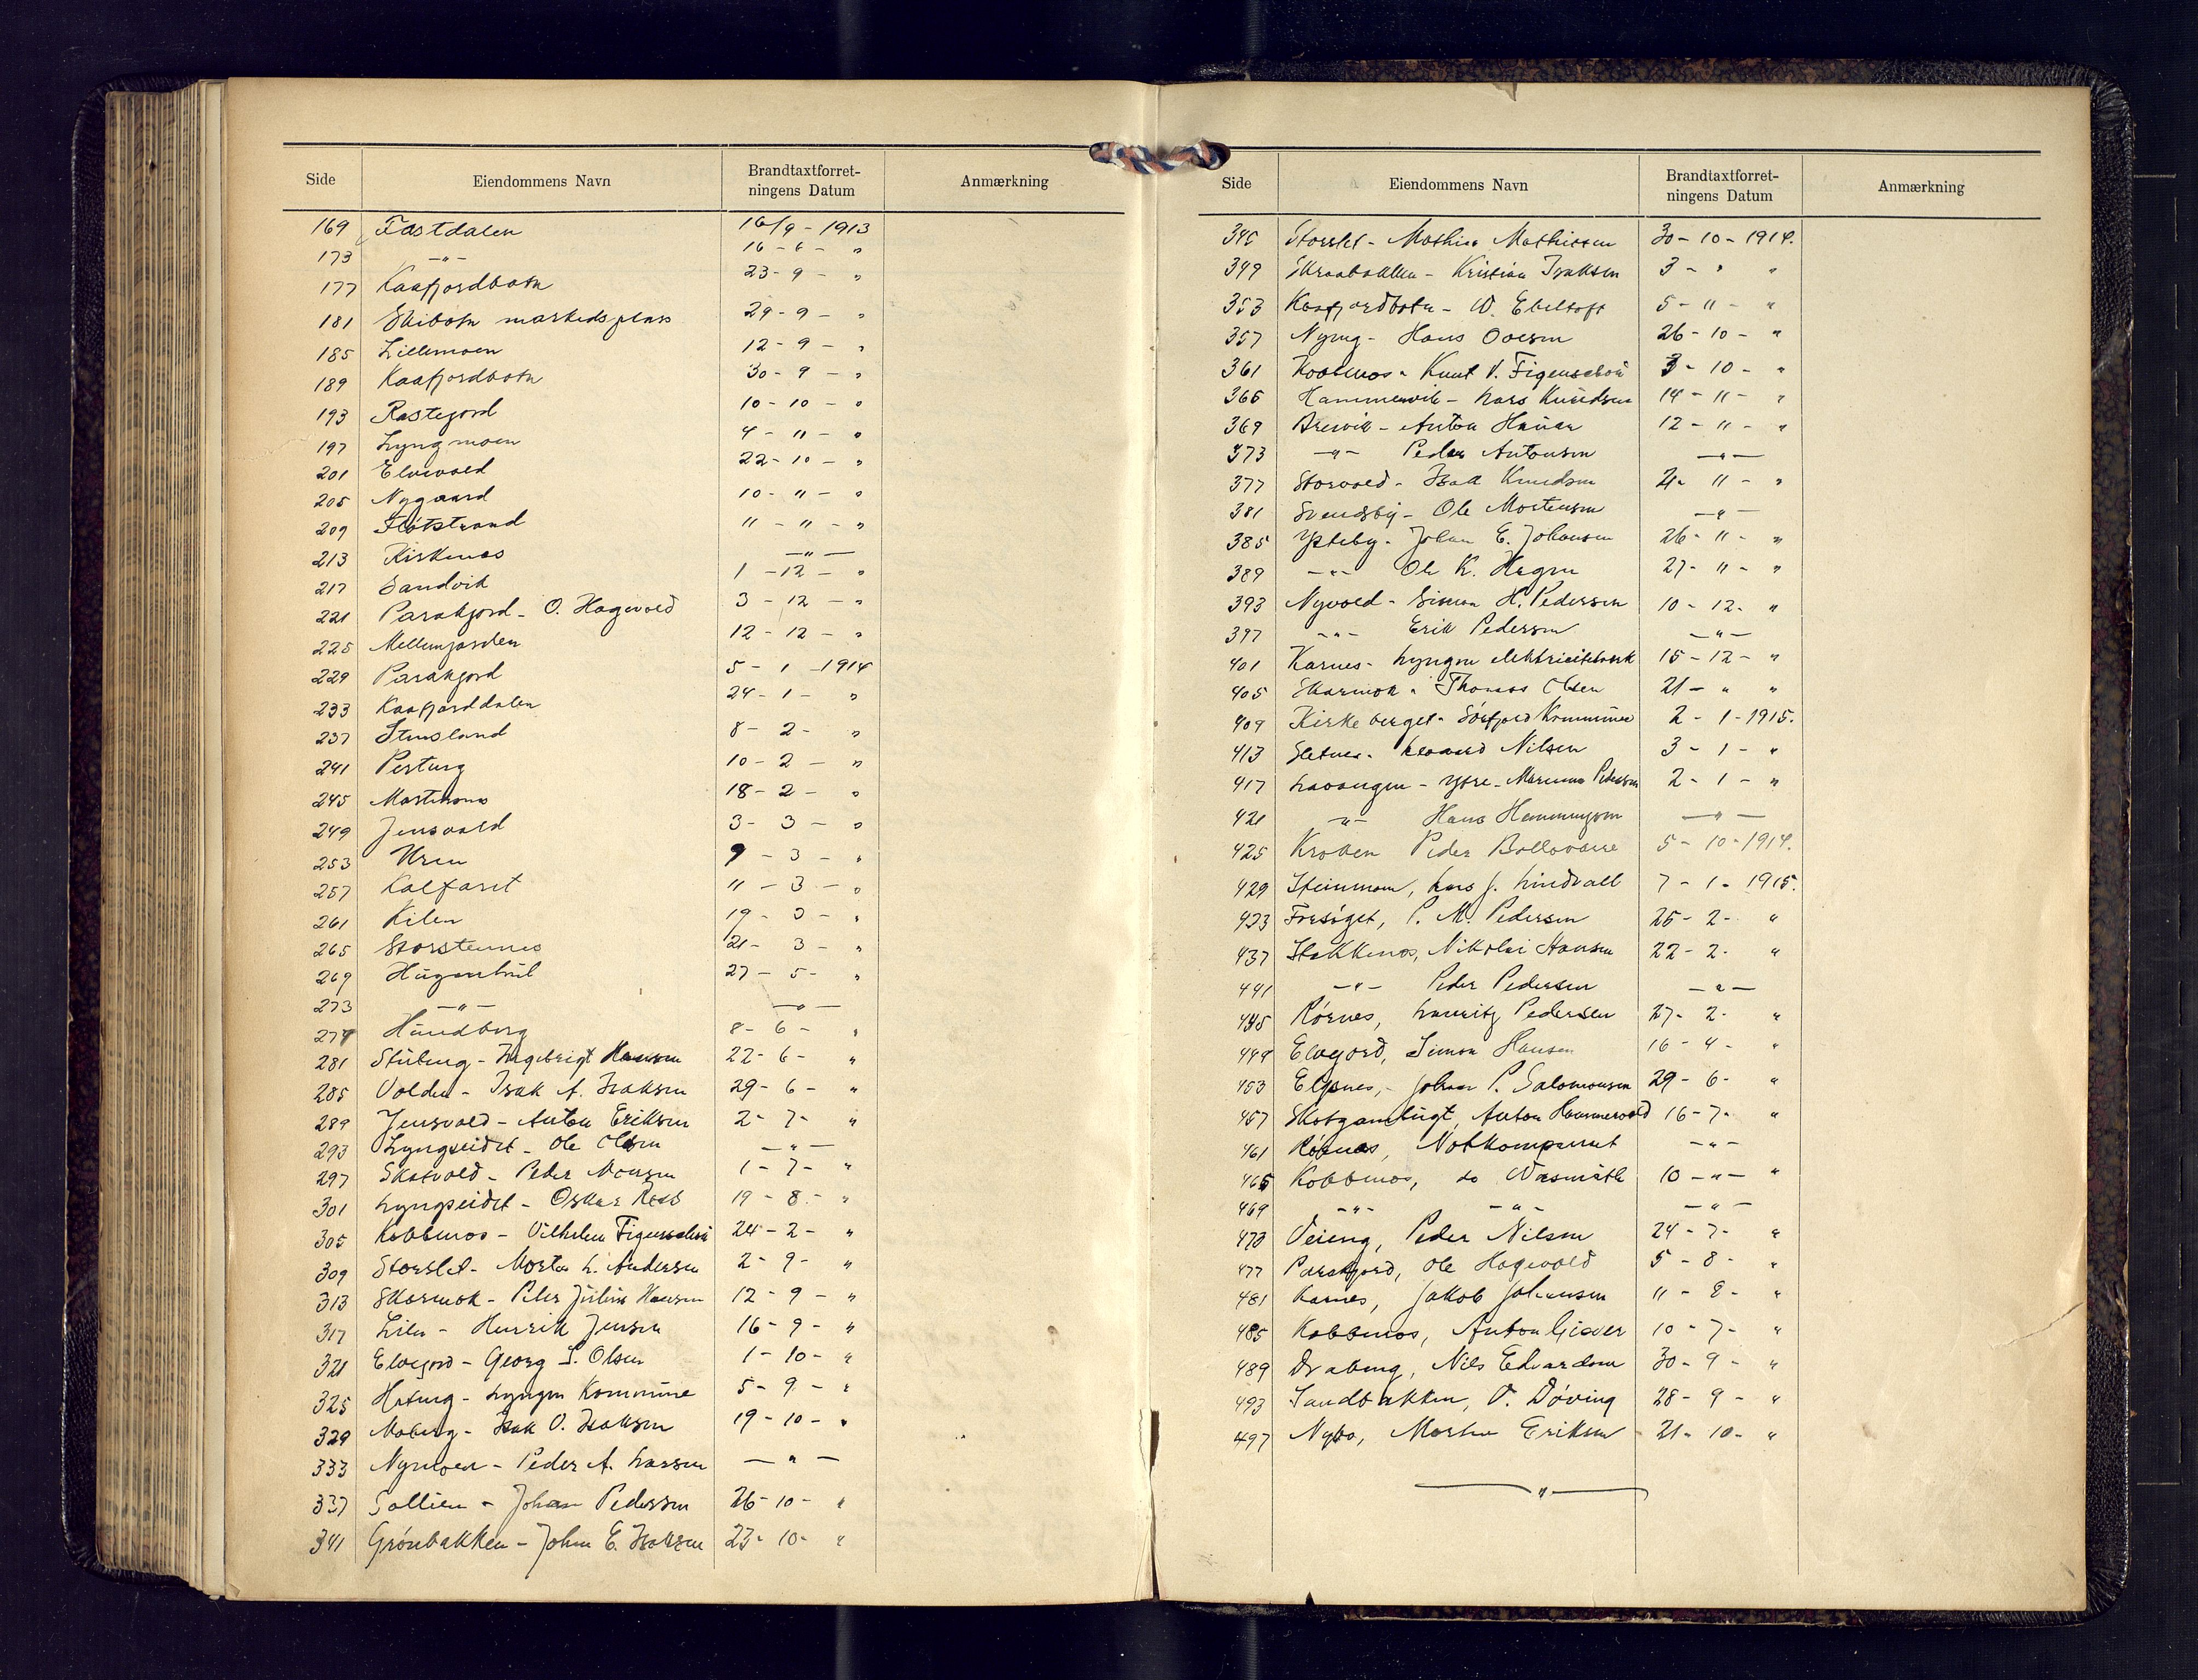 Side Eiendommens Navn Brandtaxtforret-
ningens Datum Anmærkning
169 Fastdalen 16/9 - 1913
173 -"- 16 - 6 - "
177 Kaafjordbotn 23 - 9 - "
181 Skibotn markedsplass 29 - 9 - "
185 Lillemoen 12 - 9 - "
189 Kaafjordbotn 30 - 9 - "
193 Rastegjord 10 - 10 - "
197 Lyngmoen 4 - 11 - "
201 Elvevold 22 - 10 - "
205 Nygaard 10 - 11 - "
209 Flótstrand 11 - 11 - "
213 Kirkenes -"-
217 Sandvik 1 - 12 - "
221 Parakjord - O. Hagevold 3 - 12 - "
225 Mellemjorden 12 - 12 - "
229 Parakjord 5 - 1 - 1914
233 Kaafjorddalen 24 - 1 - "
237 Stensland 8 - 2 - "
241 10 - 2 - "
245 18 - 2 - "
249 Jensvold 3 - 3 - "
253 Uren 9 - 3 - "
257 Kalfaret 11 - 3 - "
261 Kilen 19 - 3 - "
265 Storstennes 21 - 3 - "
269 27 - 5 - "
273 -"- -"-
277 Hundberg 8 - 6 - "
281 Stubeng - Ingebrigt Hansen 22 - 6 - "
285 Volden - Isak A. Isaksen 29 - 6 - "
289 Jensvold - Anton Eriksen 2 - 7 - "
293 Lyngseidet - Ole Olsen -"-
297 Skatvold - Peder Monsen 1 - 7 - "
301 Lyngseidet - Oskar 19 - 8 - "
305 Kobbenes - Vilhelm Figenschou 24 - 2 - "
309 Storslet - Morten L. Andersen 2 - 9 - "
313 Skarmok - Peter Julius Hansen 12 - 9 - "
317 Henrik Jensen 16 - 9 - "
321 Elvegjord - Georg S. Olsen 1 - 10 - "
325 Lyngen Kommune 5 - 9 - "
329 Moberg - Isak O. Isaksen 19 - 10 - "
333 Nymoen - Peder A. Larsen - " -
337 Sollien - Johan Pedersen 26 - 10 - "
341 Grónbakken - Johan E. Isaksen 23 - 10 - "
Side Eiendommens Navn Brandtaxtforret-
ningens Datum Anmærkning
345 Storslet - Mathias Mathissen 30 - 10 - 1914.
349 Skraabakken - Kristian Isaksen 3 - " "
353 Kaafjordbotn - W. Ebeltoft 5 - 11 - "
357 Nyeng - Hans Olsen 26 - 10 - "
361 Kobbenes - Knut V. Figenschou 3 - 10 - "
365 Hammervik - Lars Knudsen 14 - 11 - "
369 Breivik - Anton 12 - 11 - "
373 -"- Peder Antonsen -"-
377 Storvold - Isak Knudsen 2 - 11 - "
381 Svendsby - Ole Mortensen -"-
385 Ysteby - Johan E. Johansen 26 - 11 - "
389 -"- Ole K. Hegre 27 - 11 - "
393 Nyvold - Simon H. Pedersen 10 - 12 - "
397 -"- Erik Pedersen -"-
401 Karnes - Lyngen elektricitetsverk 15 - 12 - "
405 Skarmok - Thomas Olsen 21 - " "
409 Kirkeberget - Sórfjord Kommune 2 - 1 - 1915.
413 Sletnes - Leonard Nilsen 3 - 1 - "
417 Lavangen - ytre - Pedersen 2 - 1 - "
421 -"- Hans Hemmingsen -"-
425 Kroken Peder Bollovarre 5 - 10 - 1914.
429 Steinmoen, Lars J. Lindvall 7 - 1 - 1915.
433 Forsóget, P. M. Pedersen 25 - 2 - "
437 Stakkenes, Nikolai Hansen 22 - 2 - "
441 -"- Peder Pedersen -"-
445 Rórnes, Lauritz Pedersen 27 - 2 - "
449 Elvegjord, Simon Hansen 16 - 4 - "
453 Elgsnes, Johan P. Salomonsen 29 - 6 - "
457 Anton Hammervold 16 - 7 - "
461 Rórnes, Notkompaniet -"-
465 Kobbenes, do Vasmuth 10 - " - "
469 -"- -"- -"-
473 Veieng, Peder Nilsen 24 - 7 - "
477 Parakjord, Ole Hagevold 5 - 8 - "
481 Karnes, Jakob Johansen 11 - 8 - "
485 Kobbenes, Anton Giæver 10 - 7 - "
489 Drabeng, Nils Edvardsen 30 - 9 - "
493 Sandbakken, O. Dóving 28 - 9 - "
497 Nybo, Morten Eriksen 21 - 10 - "
-"-